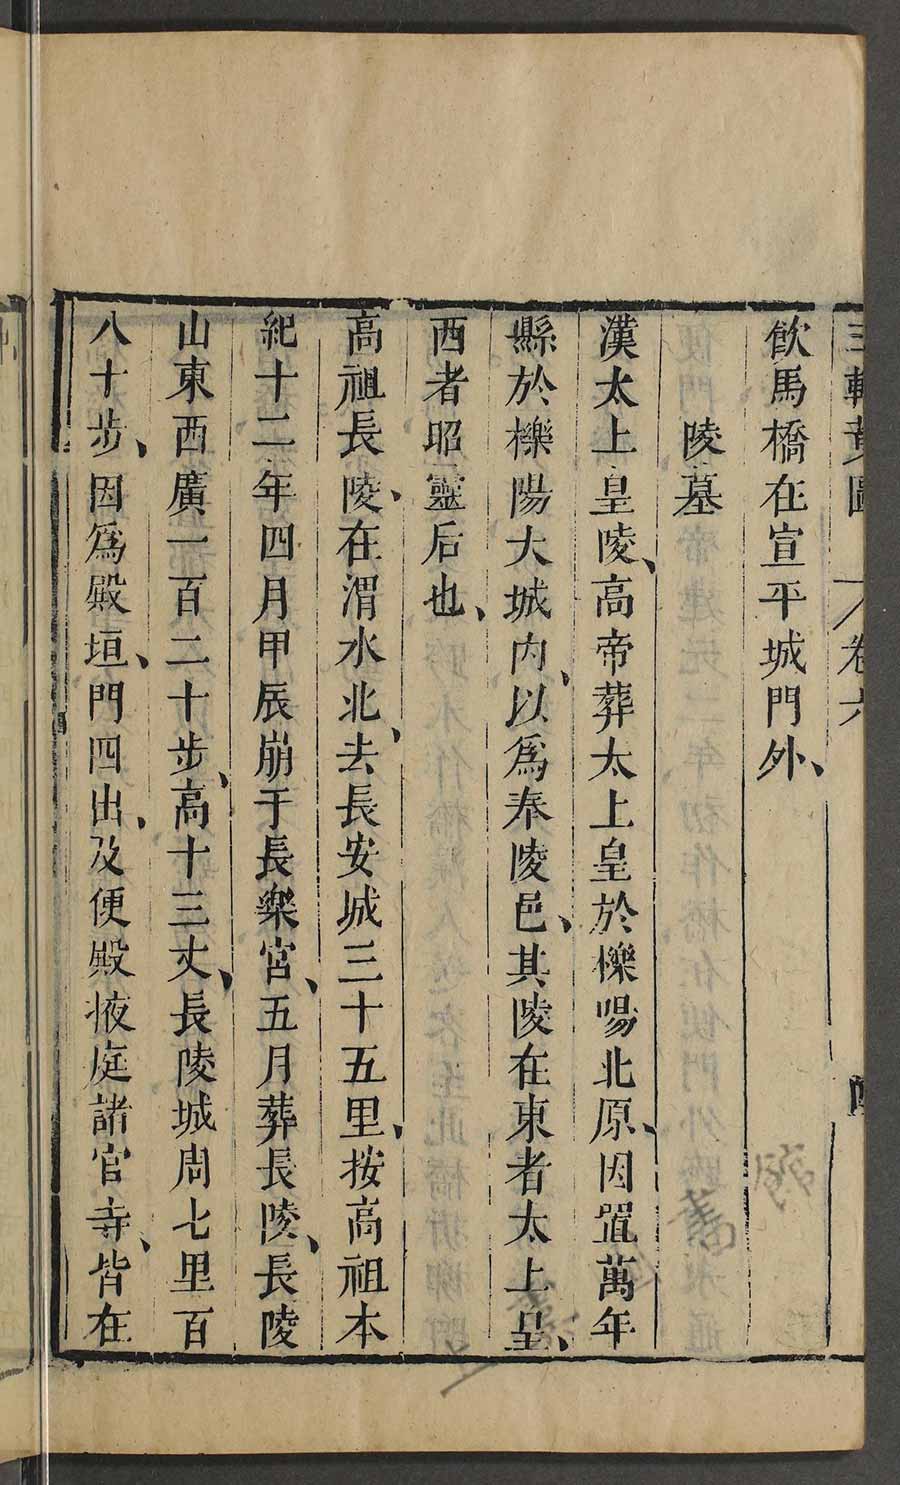 三輔黃圖 卷六
飲馬橋在宣平城門外、
陵墓
漢太上皇陵、高帝葬太上皇於櫟陽北原、因置萬年
縣於櫟陽大城内、以爲奉陵邑、其陵在東者太上皇、
西者昭靈后也、
高祖長陵、在渭水北、去長安城三十五里、按高祖本
紀十二年四月甲辰崩于長樂宮、五月葬長陵、長陵
山東西廣一百二十步、高十三丈、長陵城周七里百
八十步、因爲殿垣、門四出、及便殿掖庭諸官寺、皆在